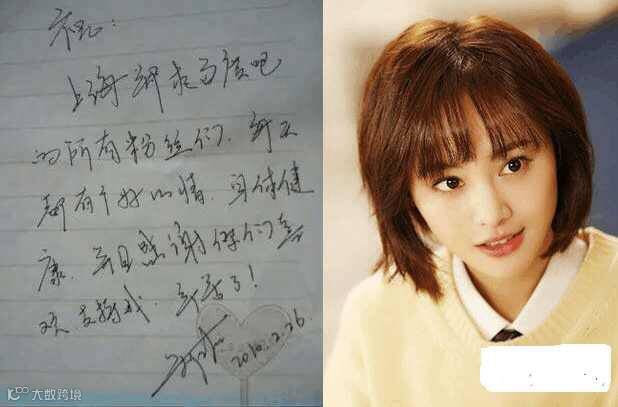 祝:
上海郑爽百度吧
的所有粉丝们. 每天
都有个好心情. 身体健
康. 并且感谢你们喜
欢支持我. 辛苦了!
2010.2.26.
大数跨境